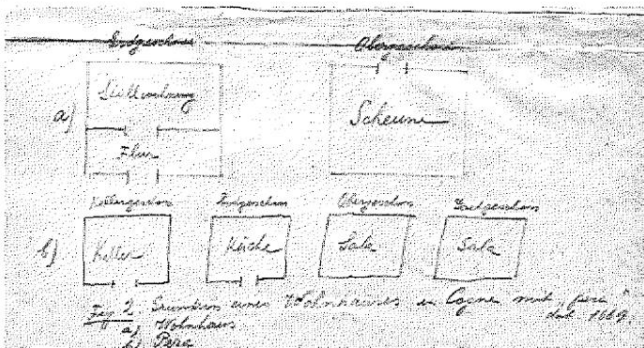 Erdgeschoss Obergeschoss
a) Stallwohnung Scheune
Flur
Kellergeschoss Erdgeschoss Obergeschoss Dachgeschoss
b) Keller Küche Sala Sala
Fig 2. Grundriss eines Wohnhauses in Cogne mit „pera“
dat 1669.
a) Wohnhaus
b) Pera